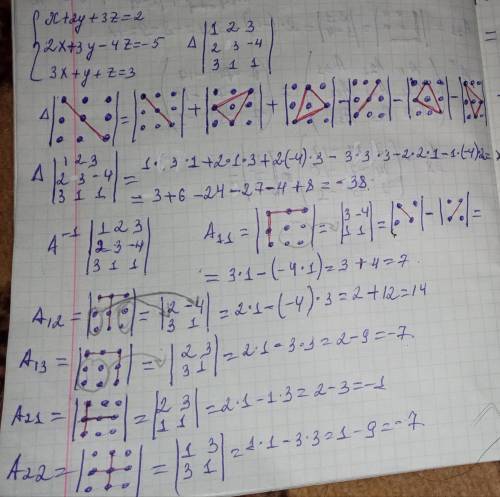 x+2y+3z=2
2x+3y-4z=-5
3x+y+z=3
Δ |1 2 3|
|2 3 -4|
|3 1 1|
Δ| | = | | + | | + | | - | | - | | - | |
Δ |1 2 3|
|2 3 -4| = 1·3·1+2·1·3+2(-4)·3-3·3·3-2·2·1-1·(-4)
|3 1 1| = 3+6-24-27-4+8=-38
A⁻¹ |1 2 3|
|2 3 -4|
|3 1 1|
A11 = | | = |3 -4|
|1 1| = | | - | | =
= 3·1-(-4·1)=3+4=7
A12 = | | = |2 -4|
|3 1| = 2·1-(-4)·3=2+12=14
A13 = | | = |2 3|
|3 1| = 2·1-3·3=2-9=-7
A21 = | | = |2 3|
|1 1| = 2·1-1·3=2-3=-1
A22 = | | = |1 3|
|3 1| = 1·1-3·3=1-9=-7